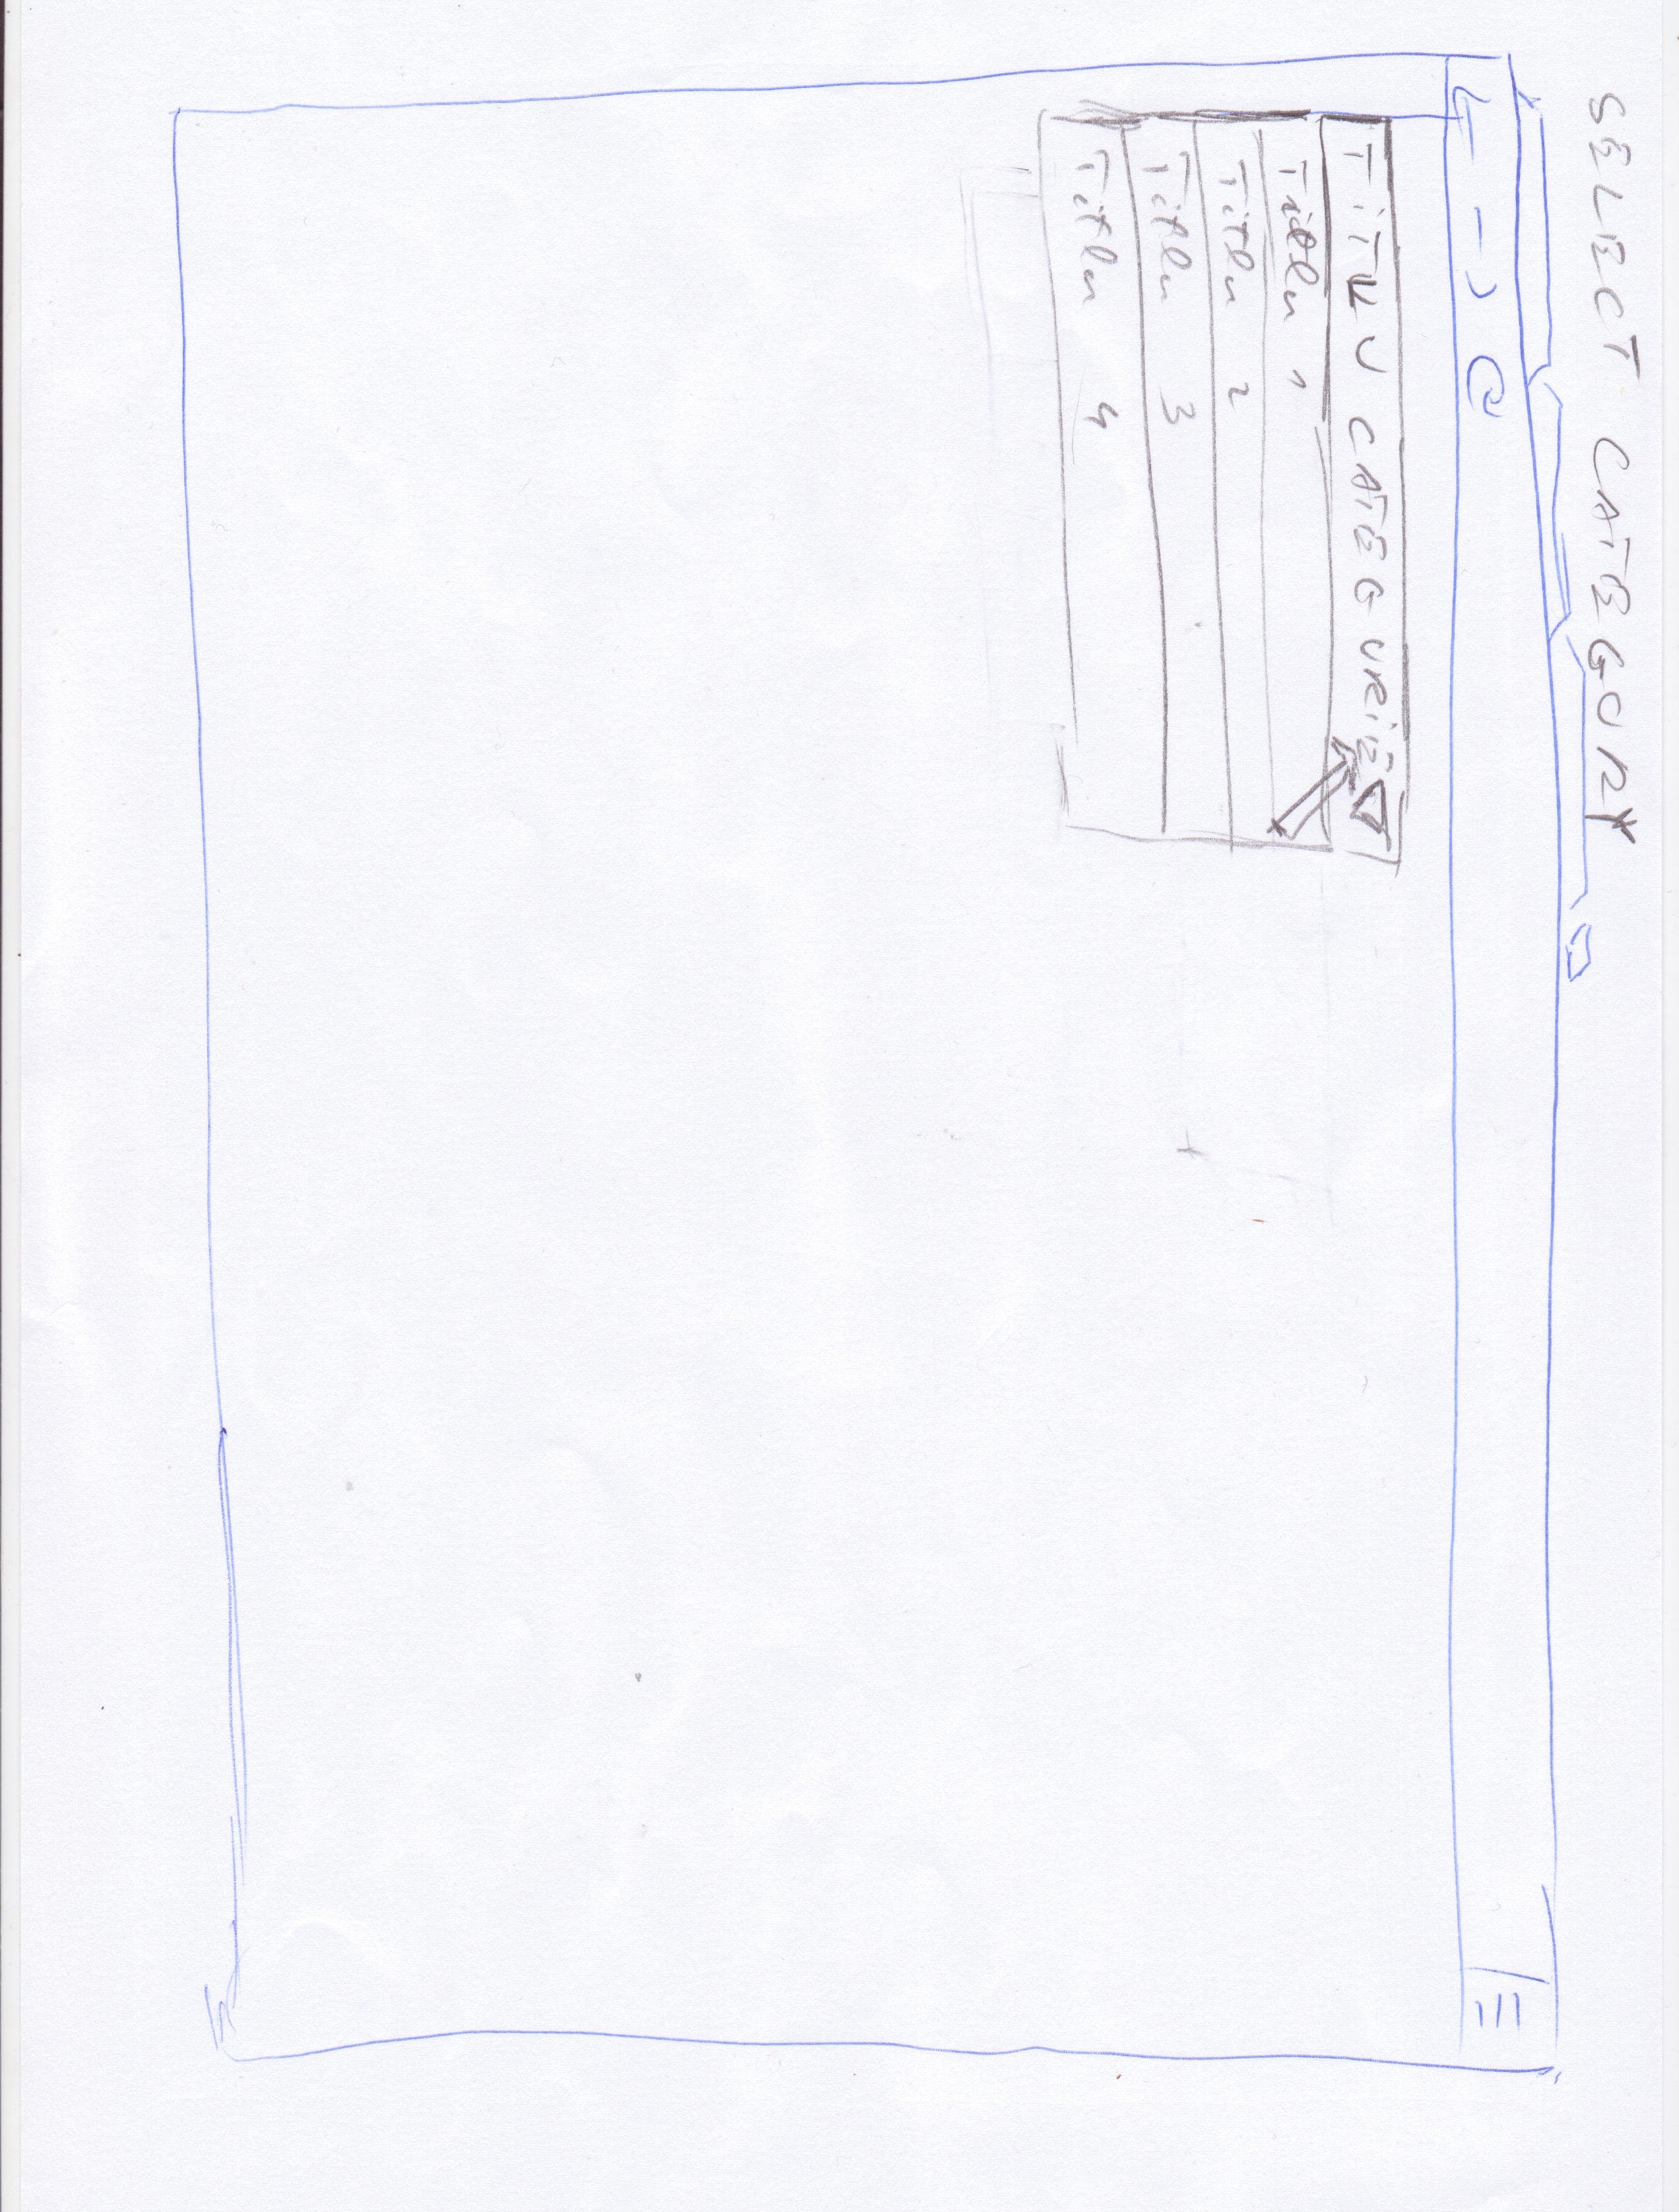 SELECT CATEGORY
TITLU CATEGORIE
Titlu 1
Titlu 2
Titlu 3
Titlu 4